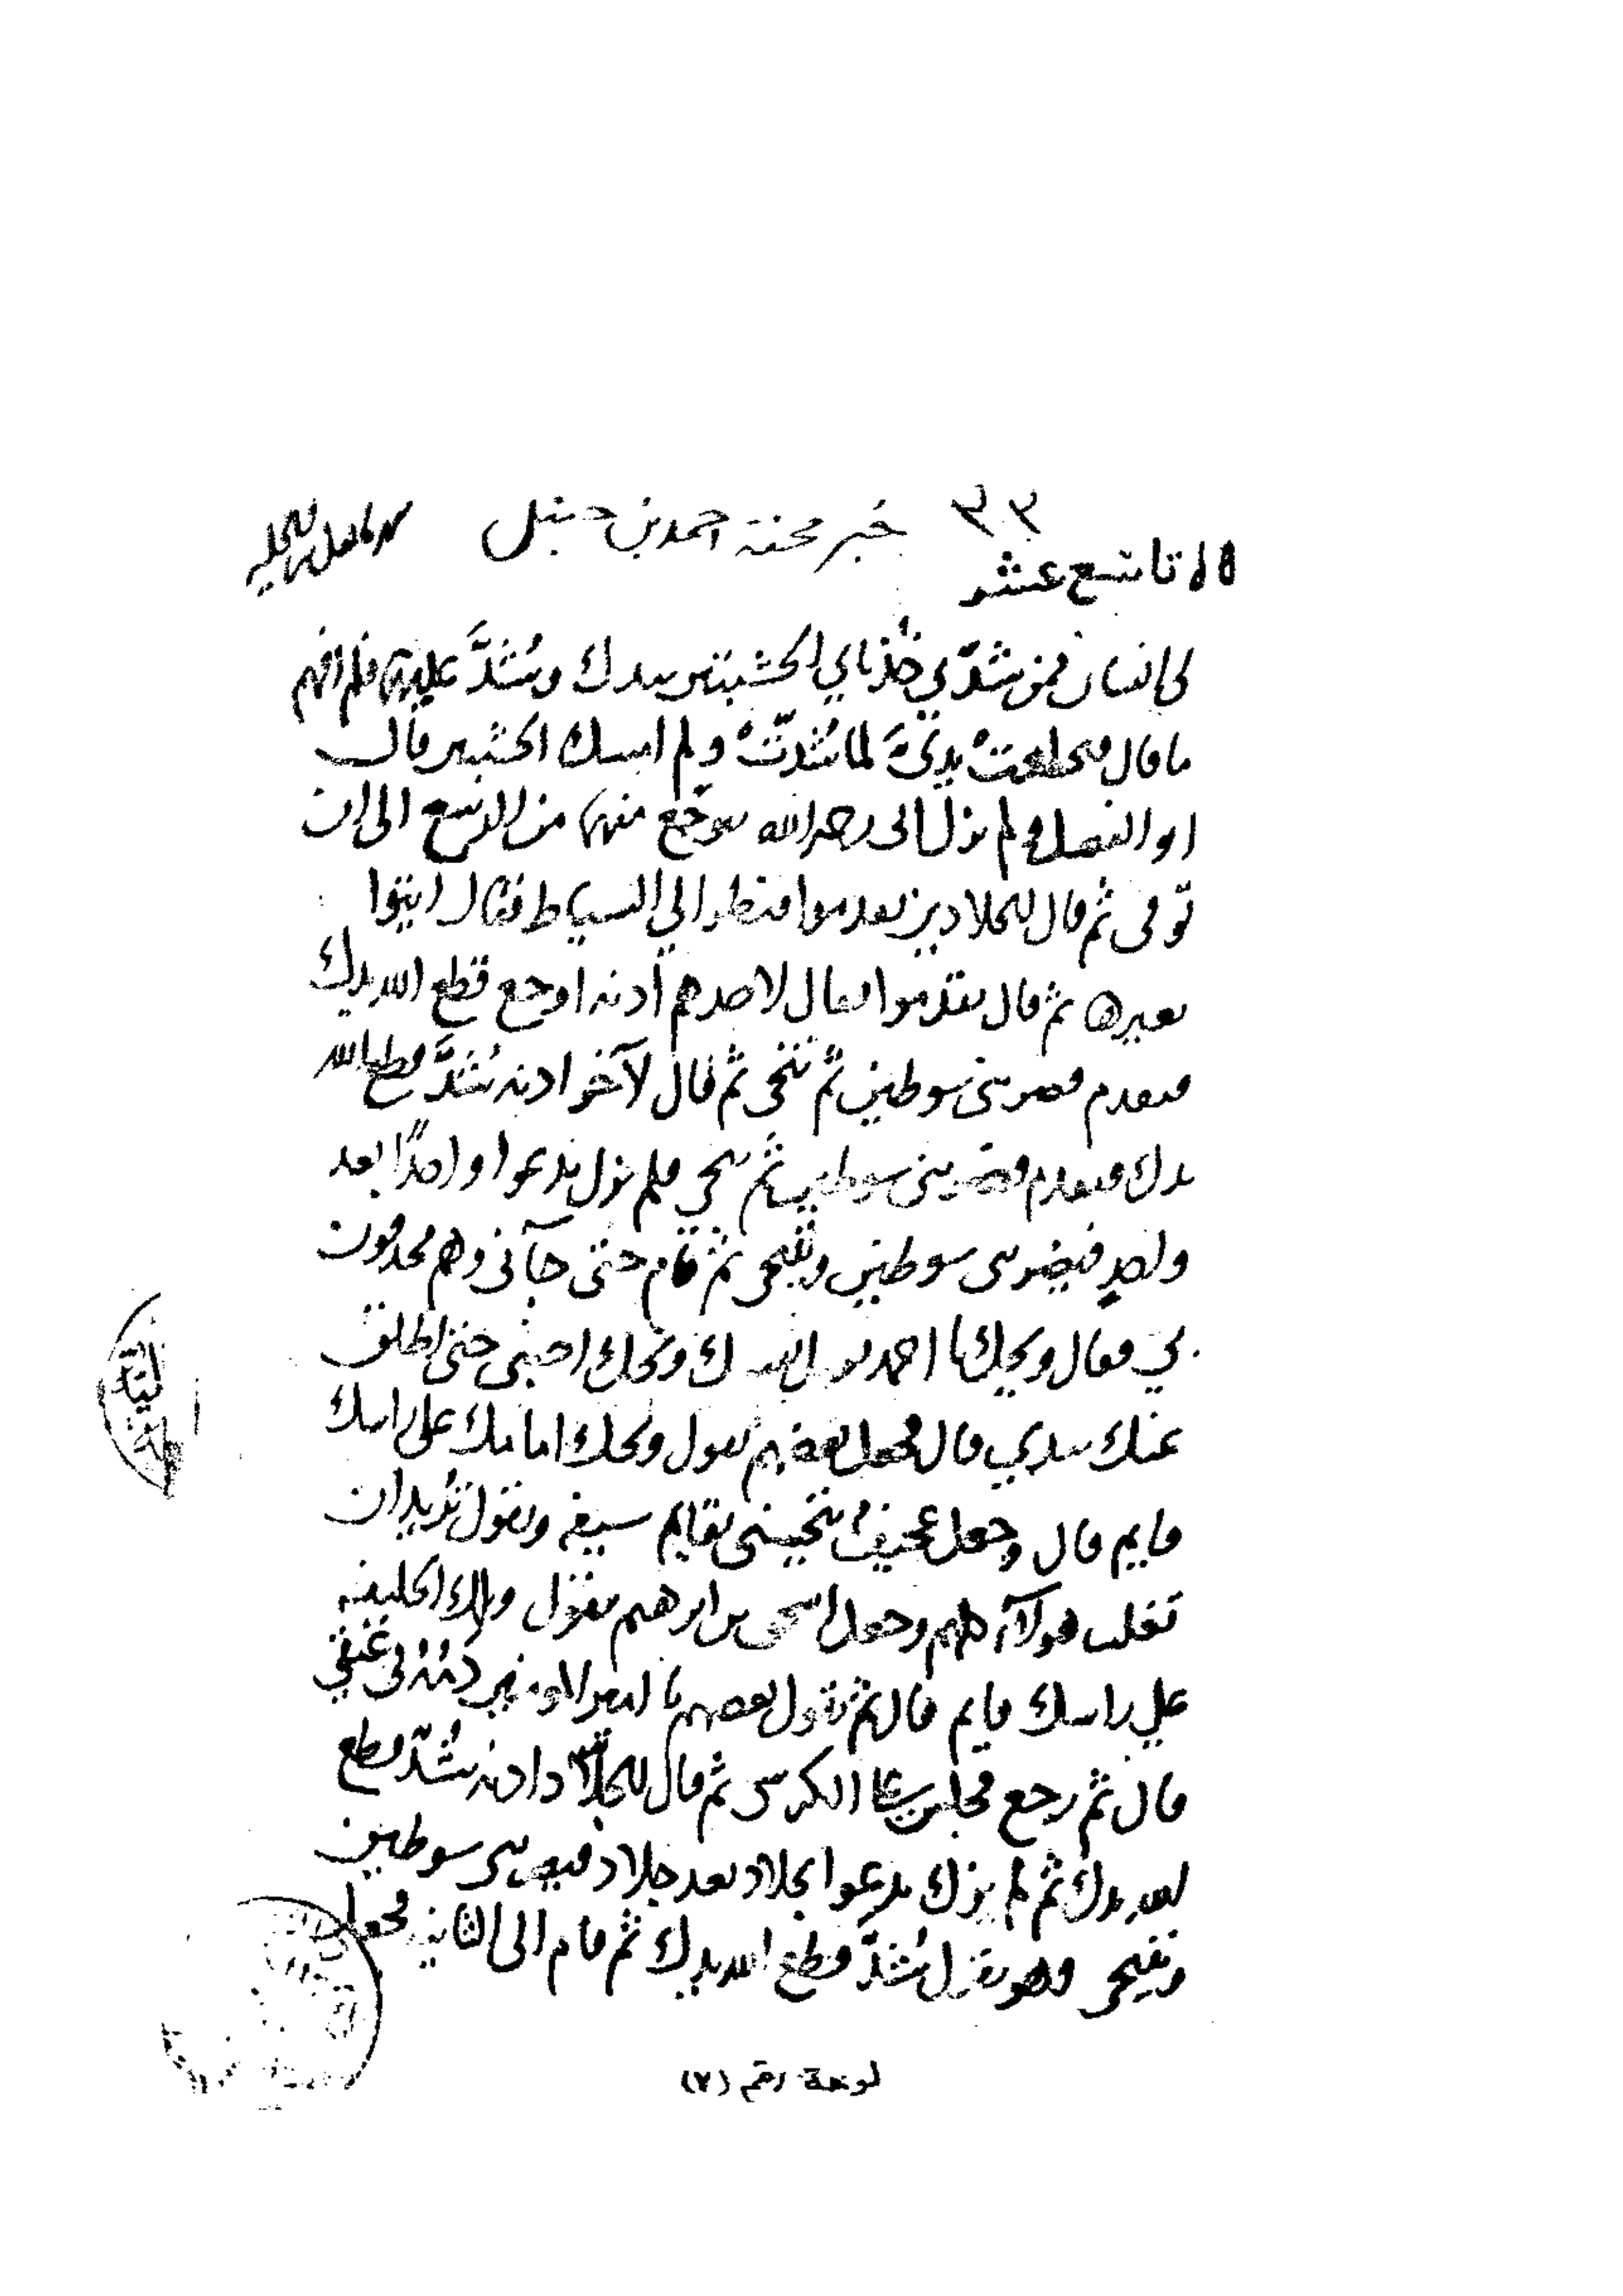 ٣٣ خبر محنة احمد بن حنبل
تاسع عشر
لي انسان ممن شدّني خذ باي الخشبتين بيدك وشُدَّ عليهما فلم افهم
ما قال فتخلعتْ يديَّ لما شُددتُ ولم امسك الخشبتين قال
ابو الفضل ولم يزل ابي رحمه الله يتوجّع منهما من الرسغ الى ان
توفى ثم قال للجلادين تقدموا فنظر الي السياط فقال ايتوا
بغيرها ثم قال تقدموا فقال لاحدهم أدنه اوجع قطع الله يدك
فتقدم فضربني سوطين ثم تنحى ثم قال لآخر ادنه شُدَّ قطع الله
يدك فتقدم فضربني سوطين ثم تنحي فلم يزل يدعوا واحدًا بعد
واحدٍ فيضربني سوطين ويتنحى ثم قام حتى جآني وهم محدقون
بي فقال ويحك يا احمد تقتل نفسك ويحك اجبني حتى اطلق
عنك بيدي قال فجعل بعضهم يقول ويحك امامك على راسك
قايم قال وجعل عجيفٌ ينخسنى بقايم سيفه ويقول تريد ان
تغلب هولآء كلهم وجعل اسحق بن ابرهيم يقول ويلك الخليفة
علي راسك قايم قال ثم يقول بعضهم يا امير المومنين دمه في عنقي
قال ثم رجع فجلس على الكرسى ثم قال للجلاد ادنه شُدّ قطع
الله يدك ثم لم يزل يدعوا بجلاد بعد جلاد فيضربني سوطين
ويتنحى وهو يقول شُدَّ قطع الله يدك ثم قام الى الثانية فجعل
لوحة رقم (٧)